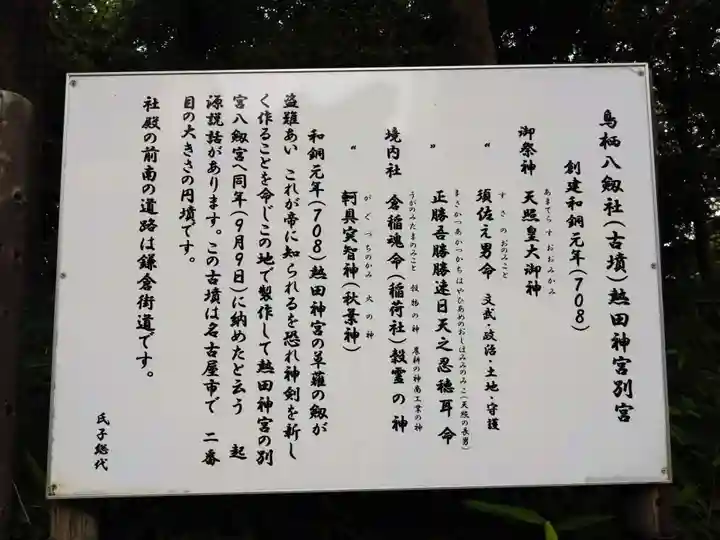 鳥栖八劔社(古墳)熱田神宮別宮
創建和銅元年(708)
御祭神 天照皇大御神
あまてらすおおみかみ
〃 須佐之男命 文武・政治・土地・守護
すさのおのみこと
〃 正勝吾勝勝速日天之忍穂耳命
まさかつあかつかちはやひあめのおしほみみのみこ(天照の長男)
境内社 倉稲魂命(稲荷社)穀霊の神
うがのみたまのみこと 穀物の神 農耕の神商工業の神
〃 軻具突智神(秋葉神)
かぐつちのかみ 火の神
和銅元年(708)熱田神宮の草薙の劔が
盗難あい これが帝に知られるを恐れ神剣を新し
く作ることを命じこの地で製作して熱田神宮の別
宮八劔宮へ同年(9月9日)に納めたと云う 起
源説話があります。この古墳は名古屋市で 二番
目の大きさの円墳です。
社殿の前南の道路は鎌倉街道です。
氏子総代